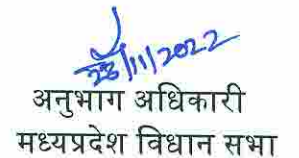 28/11/2022
अनुभाग अधिकारी
मध्यप्रदेश विधान सभा